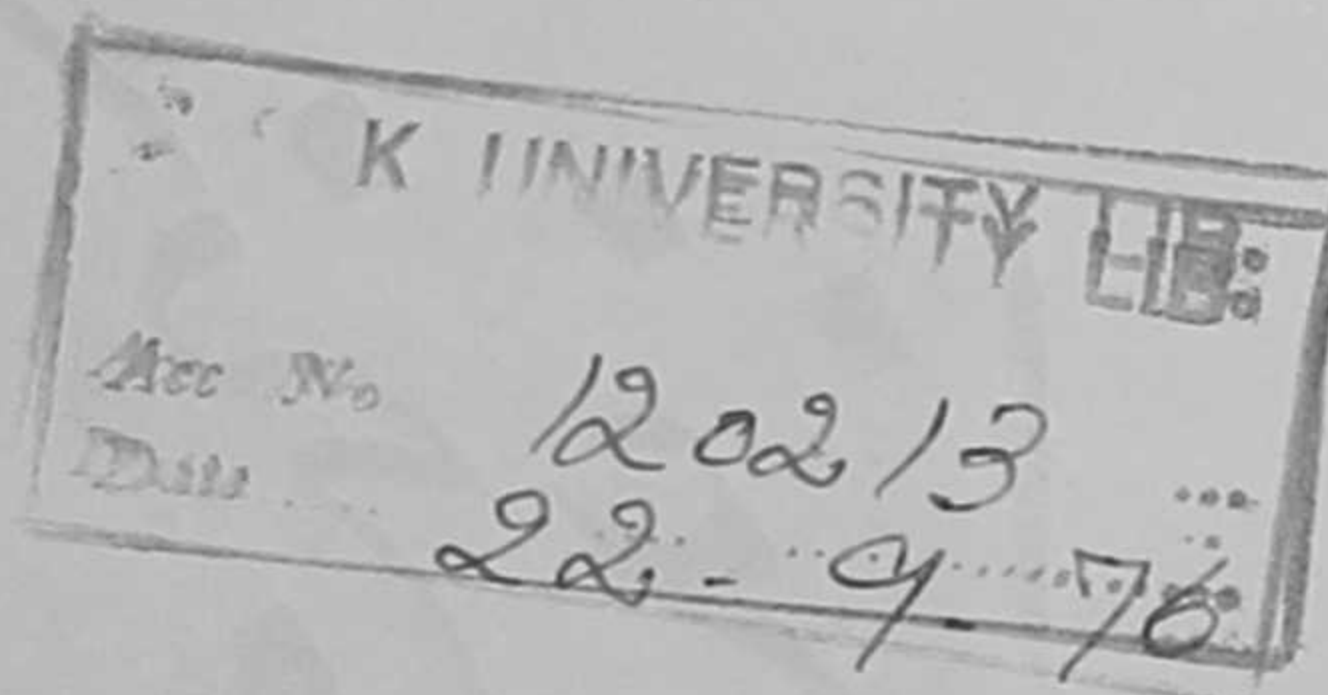 K UNIVERSITY LIB:
Acc No 120213
Date 22-9-76